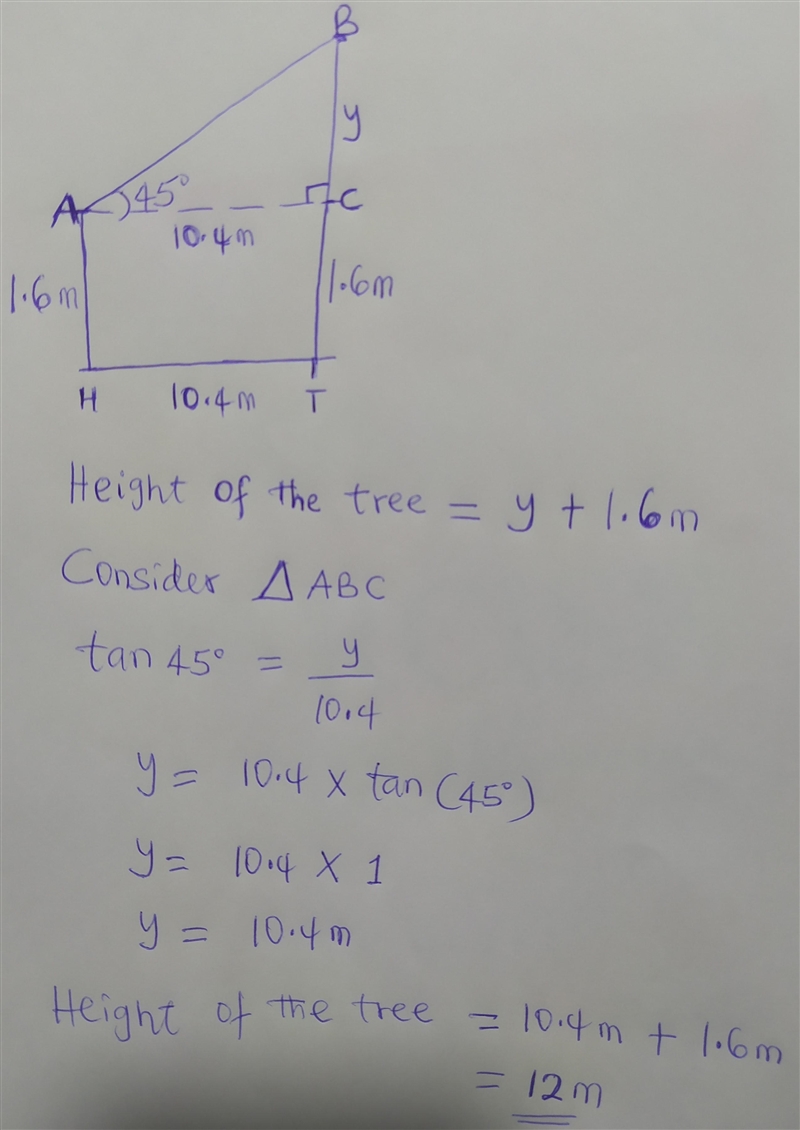 B
y
A 45° C
10.4m
1.6m 1.6m
H 10.4m T
Height of the tree = y + 1.6m
Consider △ ABC
tan 45° = y/10.4
y = 10.4 × tan (45°)
y = 10.4 × 1
y = 10.4m
Height of the tree = 10.4m + 1.6m
= 12m